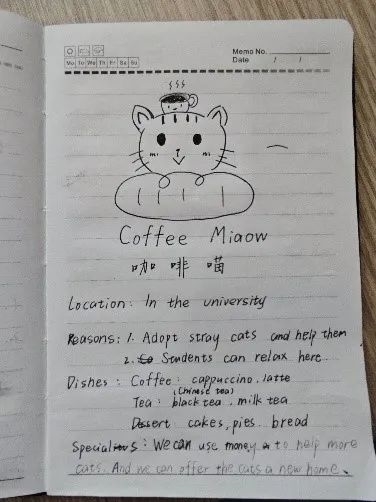 Memo No.
Mo Tu We Th Fr Sa Su
Date / /
Coffee Miaow
咖 啡 喵
Location: In the university
Reasons: 1. Adopt stray cats and help them
2. Students can relax here.
Dishes: Coffee: cappuccino, latte
(Chinese tea)
Tea: black tea, milk tea
Desert cakes, pies... bread
Specials: We can use money to help more
cats. And we can offer the cats a new home.